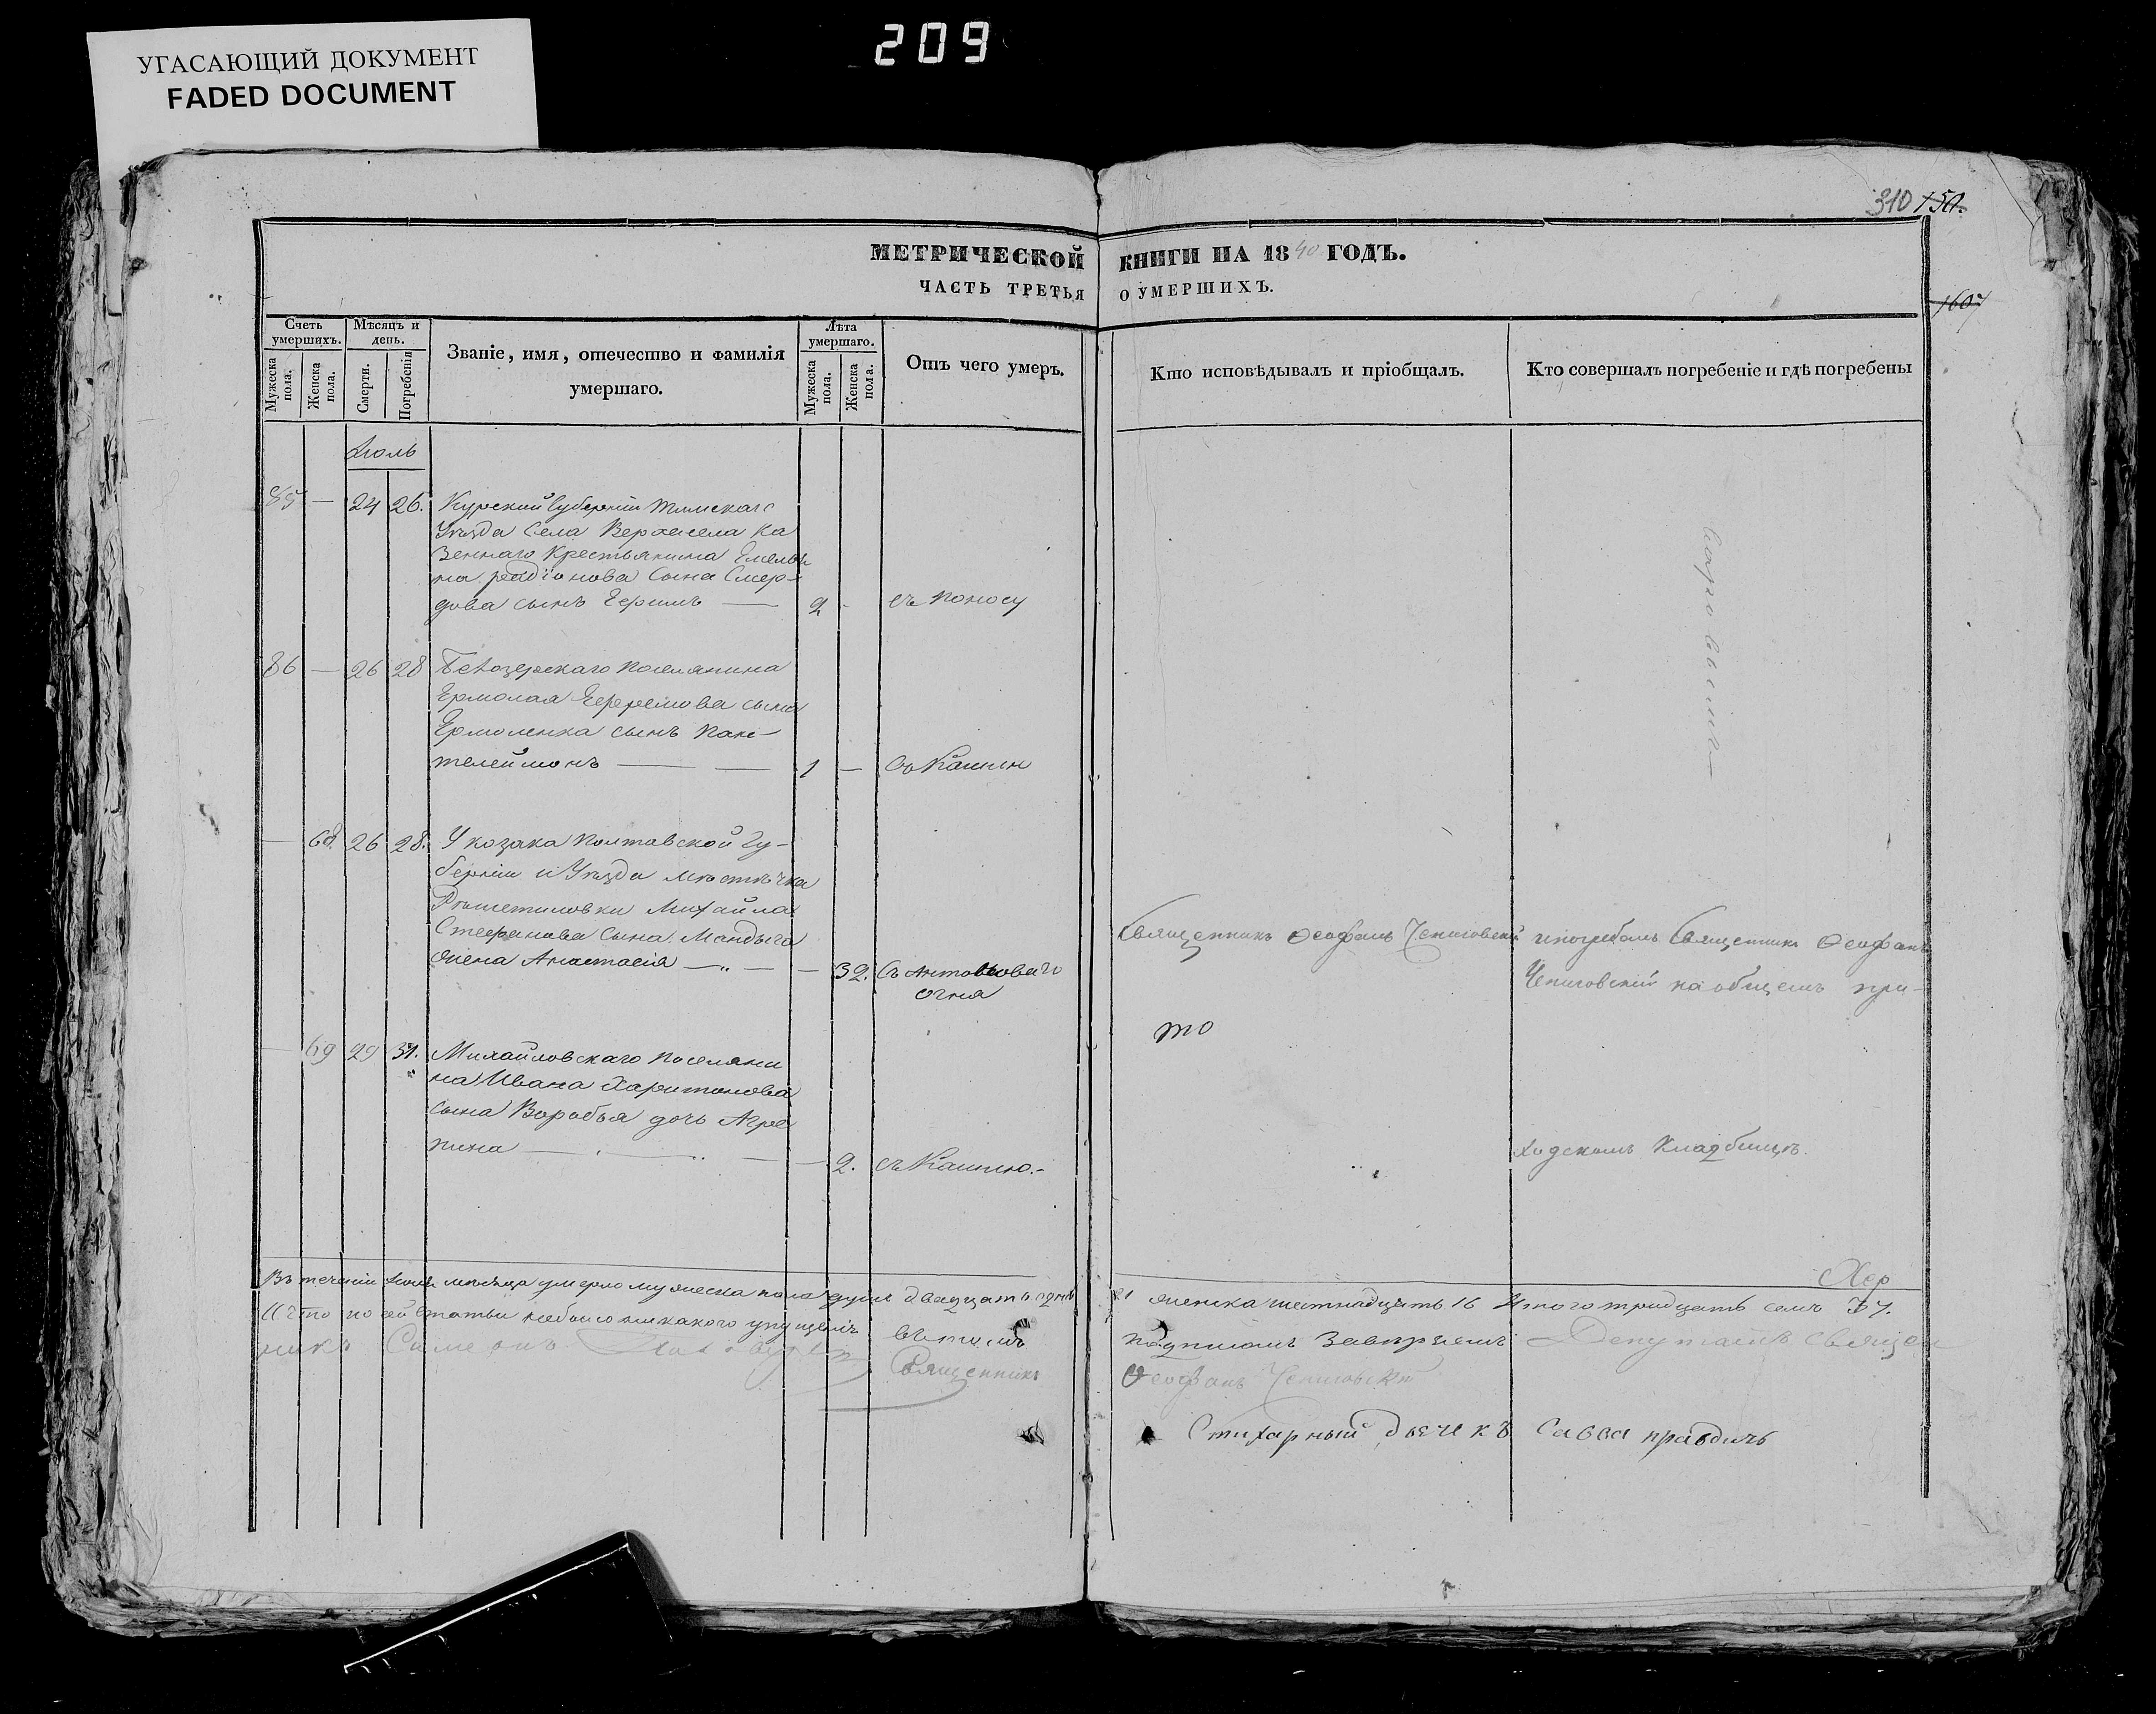 209
УГАСАЮЩИЙ ДОКУМЕНТ
FADED DOCUMENT
310 150.
МЕТРИЧЕСКОЙ КНИГИ НА 1840 ГОДЪ.
ЧАСТЬ ТРЕТЬЯ О УМЕРШИХЪ.
1607
Счетъ умершихъ.
Мужеска пола.
Женска пола.
Мѣсяцъ и день.
Смерти.
Погребенія
Званіе, имя, отечество и фамилія умершаго.
Лѣта умершаго.
Мужеска пола.
Женска пола.
Отъ чего умеръ.
Кто исповѣдывалъ и пріобщалъ.
Кто совершалъ погребеніе и гдѣ погребены
Июль
85 — 24 26. Курской Губерніи Тимскаго
Уѣзда Села Верхосела ка
зеннаго Крестьянина Емелья
на родіонова сына Смер-
дова сынъ Герасимъ — 2 - съ поносу
86 — 26 28 Бѣлозерскаго поселянина
Ермолая Ефремова сына
Ермоленка сынъ пан-
телеймонъ — — 1 — Съ Кашлю
— 68. 26 28. У козака Полтавской Гу-
берніи и Уѣзда мѣстѣчка
Рѣшетиловки Михайла
Стефанова Сына Мандыча
жена Анастасія — — — 32. Съ Антоноваго
огня
Священникъ Ѳеофанъ Чепиговскій
и погребалъ Священникъ Ѳеофанъ
Чепиговскій на общемъ при-
то
— 69 29 31. Михайловскаго поселяни
на Ивана Харитонова
сына Воробья дочь Агре
пина — — — 2. съ Кашлю.-
ходскомъ Кладбищѣ.
Хер
Въ теченіи Июля мѣсяца умерло мужеска пола душъ двадцать одна 21 женска шестнадцать 16 Итого тридцать семь 37.
И что по сей статьи небыло никакого упущенія въ томъ подписомъ завѣряемъ Депутатъ Священ
никъ Симеонъ
Священникъ Ѳеофанъ Чепиговскій
Стихарный дьячекъ Савва правдичъ